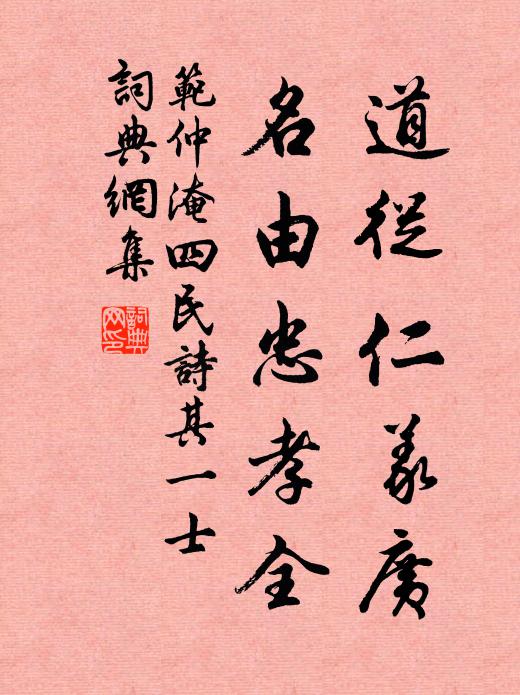 道從仁義廣
名由忠孝全
範仲淹四民詩其一士
詞典網集
詞典网印